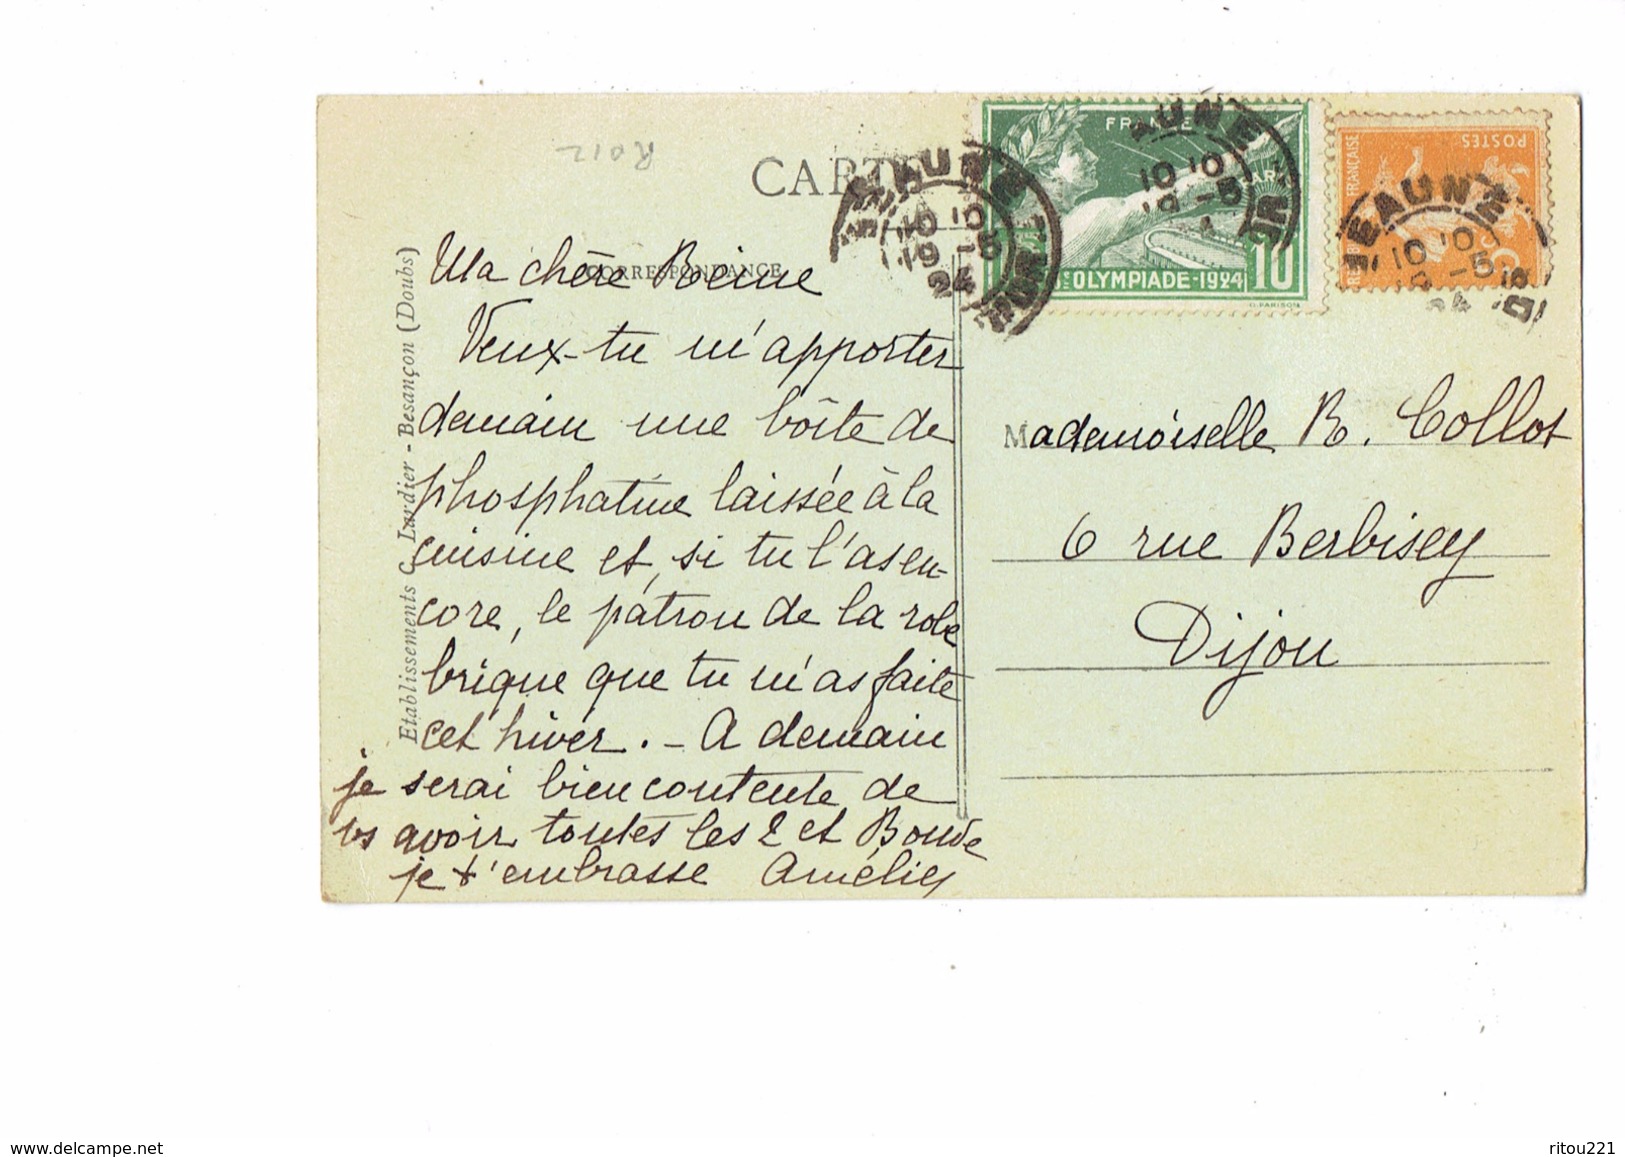 R012
CARTE
CORRESPONDANCE
Ma chère Reine
Veux-tu m'apporter
demain une boîte de
phosphatine laissée à la
cuisine et, si tu l'as en-
core, le patron de la robe
brique que tu m'as faite
cet hiver. - A demain
je serai bien contente de
vs avoir toutes les 2 et
je t'embrasse Amélie
Etablissements C. Lardier - Besançon (Doubs)
BEAUNE
10 10
19 -5
24
FRANCE
8e OLYMPIADE-1924
10
AUNE
10 10
19 -5
POSTES
FRANÇAISE
BEAUNE
10 10
-5
24
Mademoiselle R. Collot
6 rue Berbisey
Dijon
Delcampe.net
ritou221